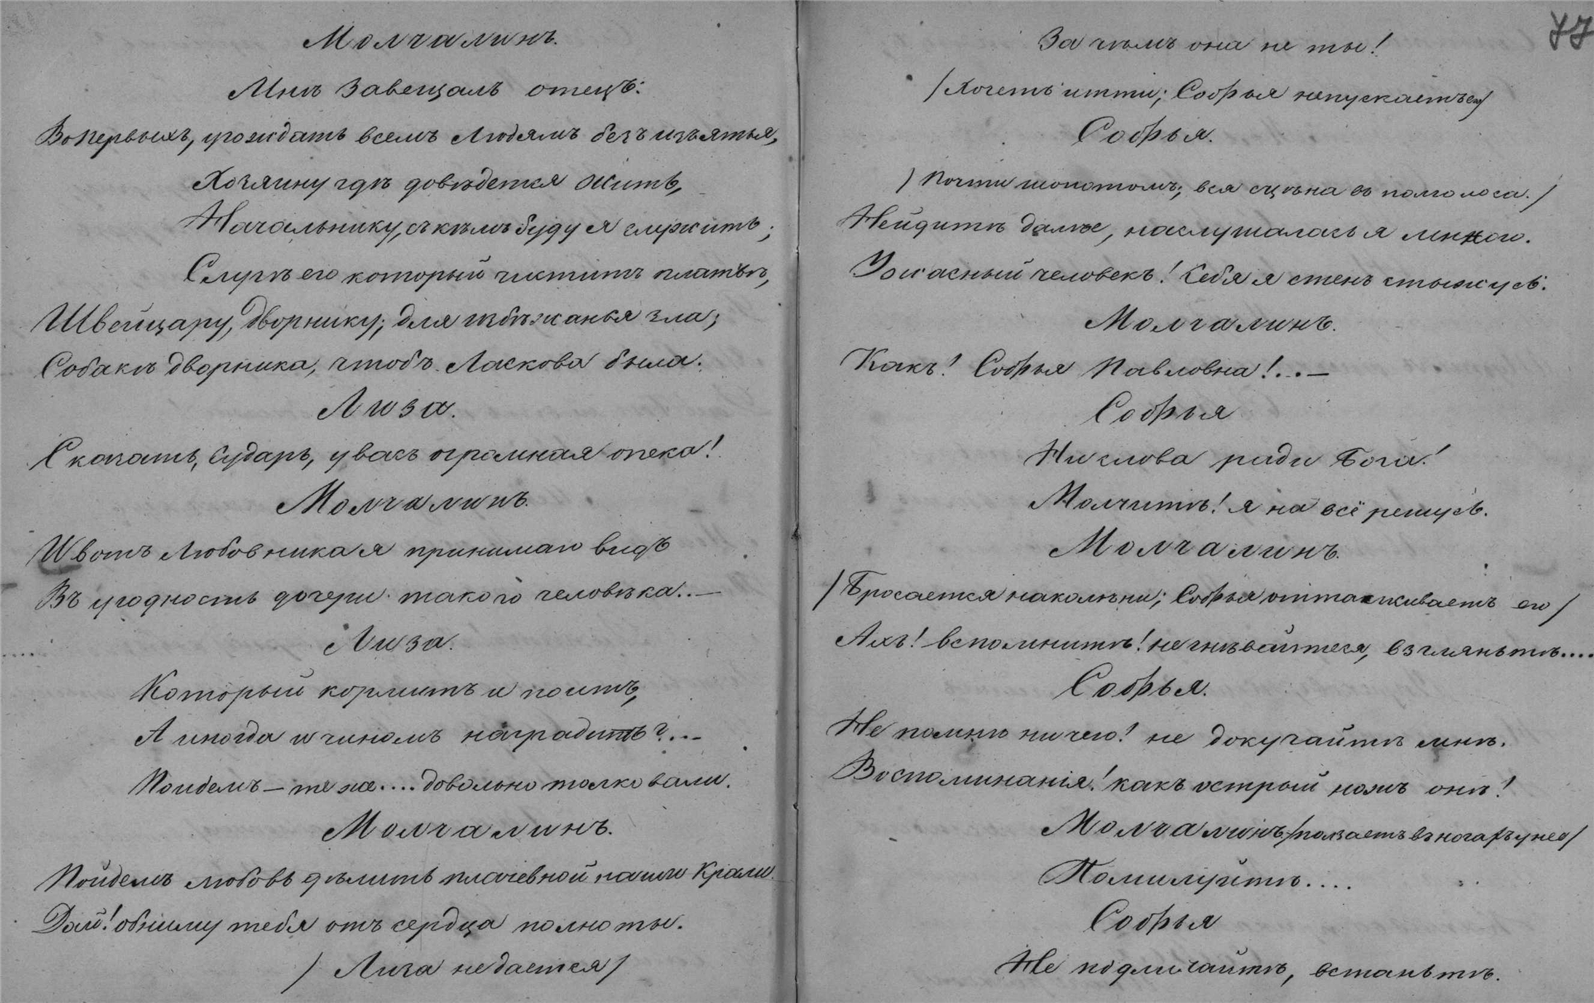 Молчалинъ.
Мнѣ завещалъ отецъ:
Вопервыхъ, угождать всемъ людямъ безъ изъятья,
Хозяину гдѣ доведется жить,
Начальнику, съ кѣмъ буду я служить;
Слугѣ его который чиститъ платье,
Швейцару, дворнику, для избѣжанья зла;
Собакѣ дворника, чтобъ ласкова была.
Лиза.
Сказать, сударь, у васъ огромная опека!
Молчалинъ.
И вотъ любовника я принимаю видъ
Въ угодность дочери такого человѣка..—
Лиза.
Который кормитъ и поитъ,
А иногда и чиномъ наградитъ?..–
Пойдемъ – те же.... довольно толковали.
Молчалинъ.
Пойдемъ любовь дѣлить плачевной нашей крали
Дай! обниму тебя отъ сердца полноты.
/ Лиза не дается /
77
Зачѣмъ она не ты!
/ Хочетъ итти; Софья непускаетъ его /
Софья.
/ Почти шопотомъ; вся сцѣна въ пол голоса. /
Нейдите далѣе, наслушалась я много.
Ужасный человекъ! Себя я стенъ стыжусь.
Молчалинъ.
Какъ! Софья Павловна!..–
Софья
Ни слова ради Бога!
Молчите! я на всё решусь.
Молчалинъ.
/ Бросается наколѣни; Софья отталкиваетъ его /
Ахъ! вспомните! не гнѣвайтеся, взгляньте....
Софья.
Не помню ничего! не докучайте мнѣ.
Воспоминанія! какъ острый ножъ онѣ!
Молчалинъ /ползаетъ въ ногахъ у нее/
Помилуйте....
Софья
Не подличайте, встаньте.